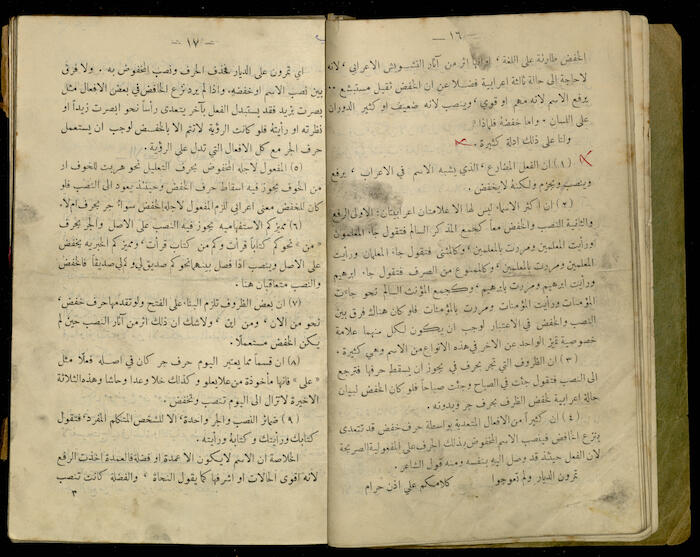 — ١٦ —
الخفض طارئة على اللغة ، اوانها اثر من آثار التشويش الاعرابي ، لانه
لاحاجة الى حالة ثالثة اعرابية فضلا عن ان الخفض ثقيل مستبشع ٠٠
يرفع الاسم لانه مهم او قوي ، وينصب لانه ضعيف او كثير الدوران
على اللسان . واما خفضه فلماذا ؟
ولنا على ذلك ادلة كثيرة .
(١) ان الفعل المضارع ، الذي يشبه الاسم في الاعراب ، يرفع
وينصب ويجزم ولكنه لايخفض .
(٢) ان اكثر الاسماء ليس لها الا علامتان اعرابيتان: الاولى للرفع
والثانية للنصب والخفض معاً كجمع المذكر السالم فتقول جاء المعلمون
ورأيت المعلمين ومررت بالمعلمين، وكالمثنى فتقول جاء المعلمان ورأيت
المعلمين ومررت بالمعلمين ، وكالممنوع من الصرف فتقول جاء ابرهيم
ورأيت ابرهيم ومررت بابرهيم ، وكجمع المؤنث السالم نحو جاءت
المؤمنات ورأيت المؤمنات ومررت بالمؤمنات فلو كان هناك فرق بين
النصب والخفض في الاعتبار لوجب ان يكون لكل منهما علامة
خصوصية تميز الواحد عن الآخر في هذه الانواع من الاسم وهي كثيرة .
(٣) ان الظروف التي تجر بحرف في يجوز ان يسقط حرفها فترجع
الى النصب فتقول جئت في الصباح وجئت صباحاً فلو كان الخفض لبيان
حالة اعرابية لخفض الظرف بحرف جر وبدونه .
(٤) ان كثيراً من الافعال المتعدية بواسطة حرف خفض قد تتعدى
بنزع الخافض فينصب الاسم المخفوض بذلك الحرف على المفعولية الصريحة
لان الفعل حينئذ قد وصل اليه بنفسه ومنه قول الشاعر .
تمرون الديار ولم تعوجوا كلامكم علي اذن حرام
— ١٧ —
اي تمرون على الديار فحذف الحرف ونصب المخفوض به . ولا فرق
بين نصب الاسم اوخفضه. واذا لم يرد نزع الخافض في بعض الافعال مثل
بصرت بزيد فقد يستبدل الفعل بآخر يتعدى رأساً نحو ابصرت زيداً او
نظرته او رأيته فلو كانت الرؤية لاتتم الا بالخفض لوجب ان يستعمل
حرف الجر مع كل الافعال التي تدل على الرؤية .
(٥) المفعول لاجله المخفوض بحرف التعليل نحو هربت للخوف او
من الخوف يجوز فيه اسقاط حرف الخفض وحينئذ يعود الى النصب فلو
كان للخفض معنى اعرابي للزم المفعول لاجله الخفض سواء جر بحرف ام لا.
(٦) مميز كم الاستفهاميه يجوز فيه النصب على الاصل والجر بحرف
« من » نحو كم كتاباً قرأت وكم من كتاب قرأت ، ومميز كم الخبرية يخفض
على الاصل وينصب اذا فصل بينهما نحو كم صديق لي وكم لي صديقاً فالخفض
والنصب متعاقبان هنا .
(٧) ان بعض الظروف تلزم البناء على الفتح ولو تقدمها حرف خفض،
نحو من الآن ، ومن اين ، ولاشك ان ذلك اثر من آثار النصب حين لم
يكن الخفض مستعملا .
(٨) ان قسماً مما يعتبر اليوم حرف جر كان في اصله فعلا مثل
«على » فانها مأخوذة من علا يعلو وكذلك خلا وعدا وحاشا وهذه الثلاثة
الاخيرة لاتزال الى اليوم تنصب وتخفض .
(٩) ضمائر النصب والجر واحدة، الا للشخص المتكلم المفرد، فتقول
كتابك ورأيتك وكتابه ورأيته .
الخلاصة ان الاسم لايكون الا عمدة او فضلة فالعمدة اخذت الرفع
لانه اقوى الحالات او اشرفها كما يقول النحاة ، والفضلة كانت تنصب
٣